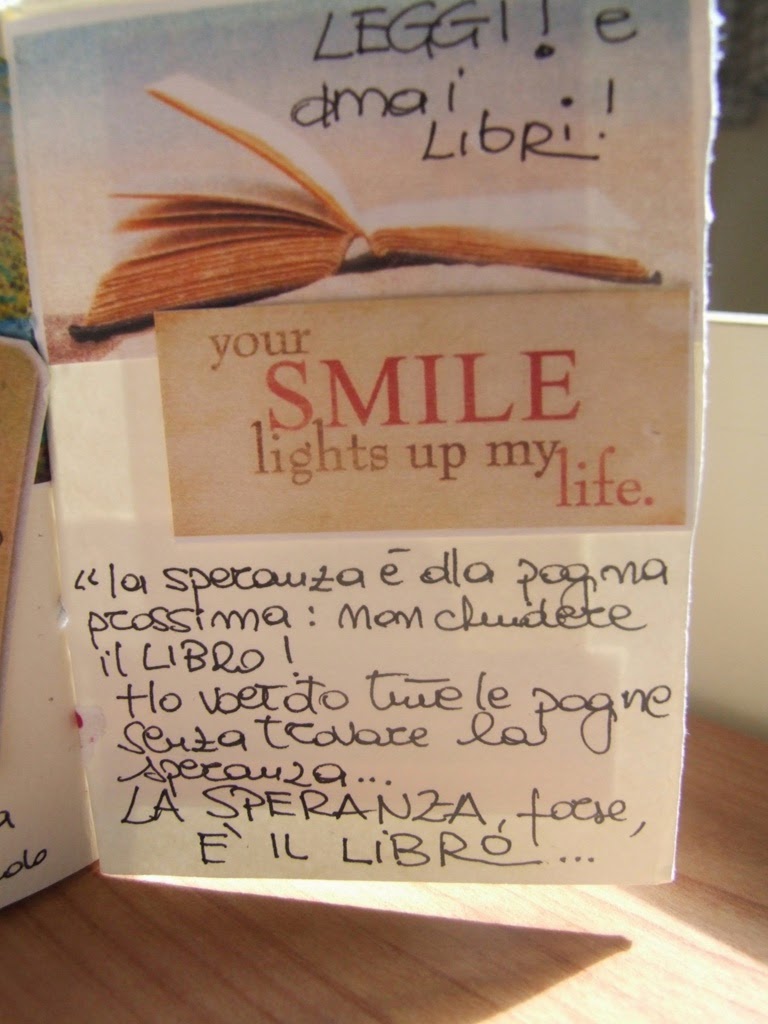 LEGGI! e
ama i
LIBRI!
your
SMILE
lights up my
life.
“la speranza è alla pagina
prossima: non chiudere
il LIBRO!
Ho voltato tutte le pagine
senza trovare la
speranza...
LA SPERANZA, forse,
E' IL LIBRO...